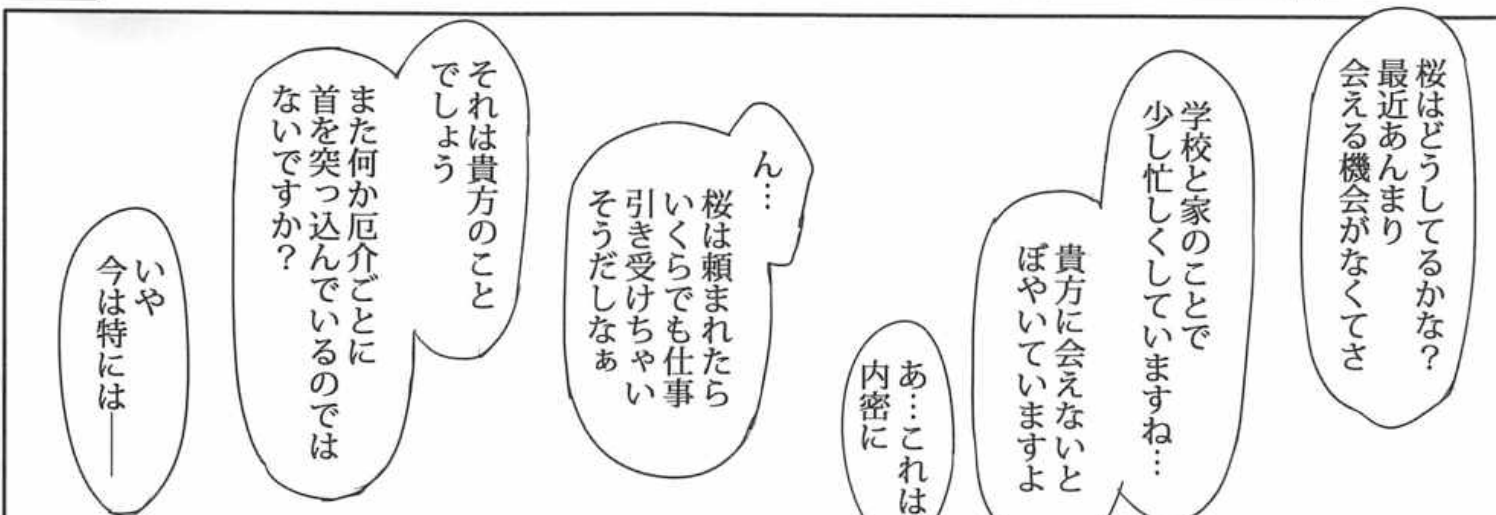 桜はどうしてるかな？
最近あんまり
会える機会がなくてさ
学校と家のことで
少し忙しくしていますね…
貴方に会えないと
ぼやいていますよ
あ…これは
内密に
ん…
桜は頼まれたら
いくらでも仕事
引き受けちゃい
そうだしなぁ
それは貴方のこと
でしょう
また何か厄介ごとに
首を突っ込んでいるのでは
ないですか？
いや
今は特には――